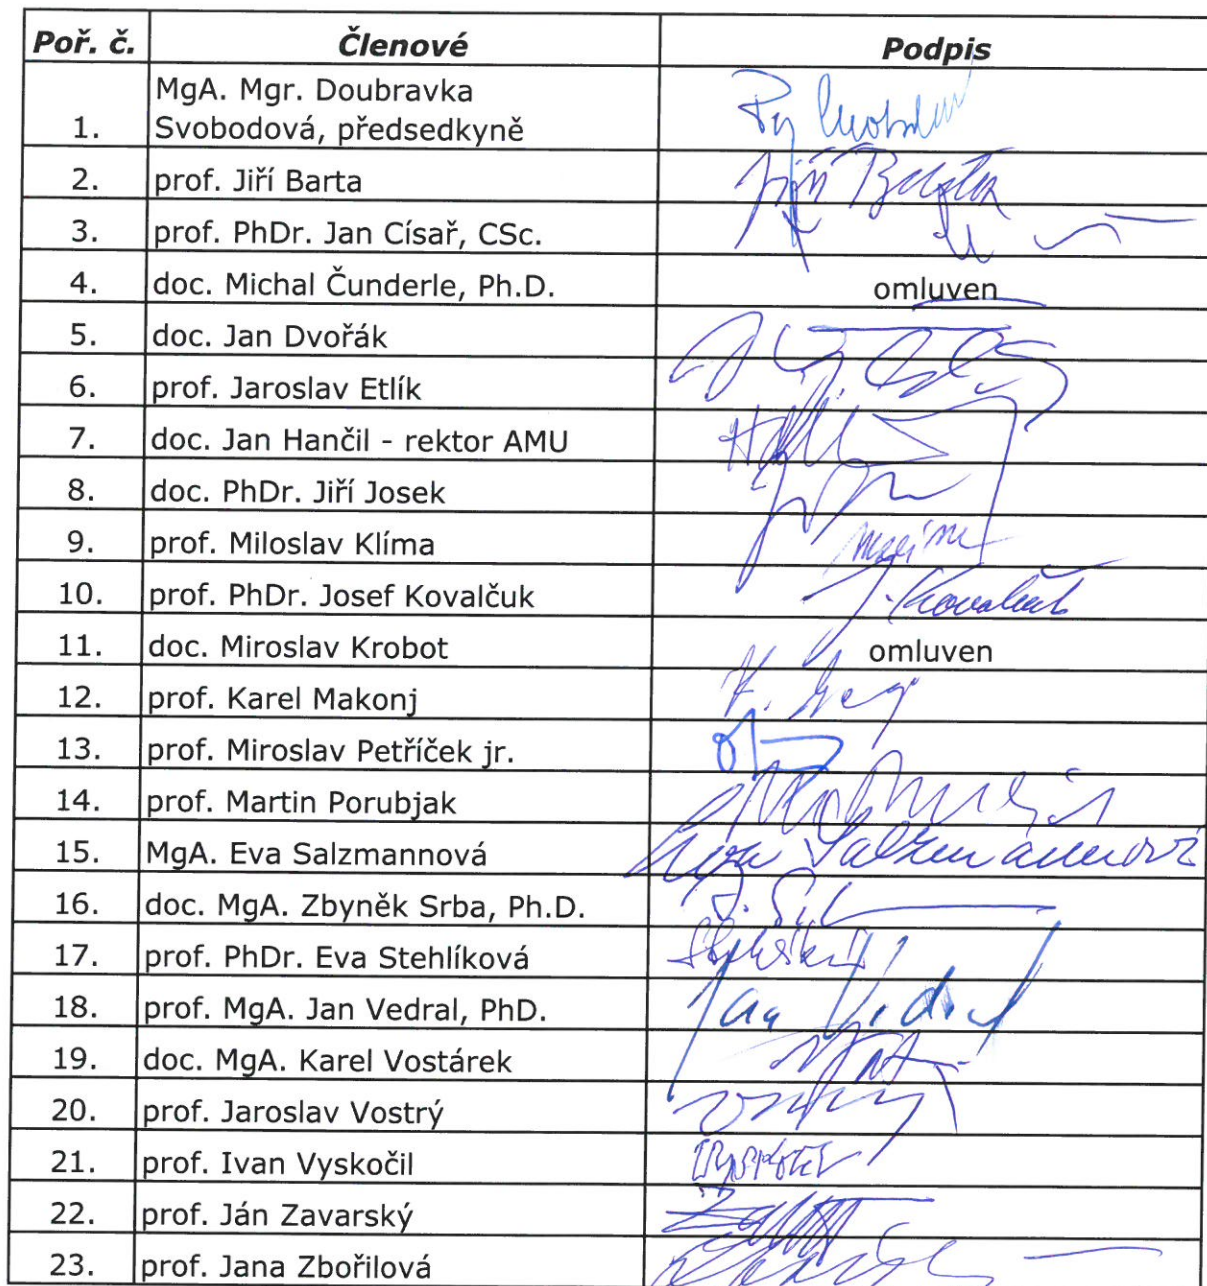 Poř. č. Členové Podpis
MgA. Mgr. Doubravka
1. Svobodová, předsedkyně
2. prof. Jiří Barta Jiří Barta
3. prof. PhDr. Jan Císař, CSc.
4. doc. Michal Čunderle, Ph.D. omluven
5. doc. Jan Dvořák
6. prof. Jaroslav Etlík
7. doc. Jan Hančil - rektor AMU
8. doc. PhDr. Jiří Josek
9. prof. Miloslav Klíma
10. prof. PhDr. Josef Kovalčuk J. Kovalčuk
11. doc. Miroslav Krobot omluven
12. prof. Karel Makonj
13. prof. Miroslav Petříček jr.
14. prof. Martin Porubjak
15. MgA. Eva Salzmannová Eva Salzmannová
16. doc. MgA. Zbyněk Srba, Ph.D.
17. prof. PhDr. Eva Stehlíková
18. prof. MgA. Jan Vedral, PhD. Jan Vedral
19. doc. MgA. Karel Vostárek
20. prof. Jaroslav Vostrý
21. prof. Ivan Vyskočil
22. prof. Ján Zavarský
23. prof. Jana Zbořilová